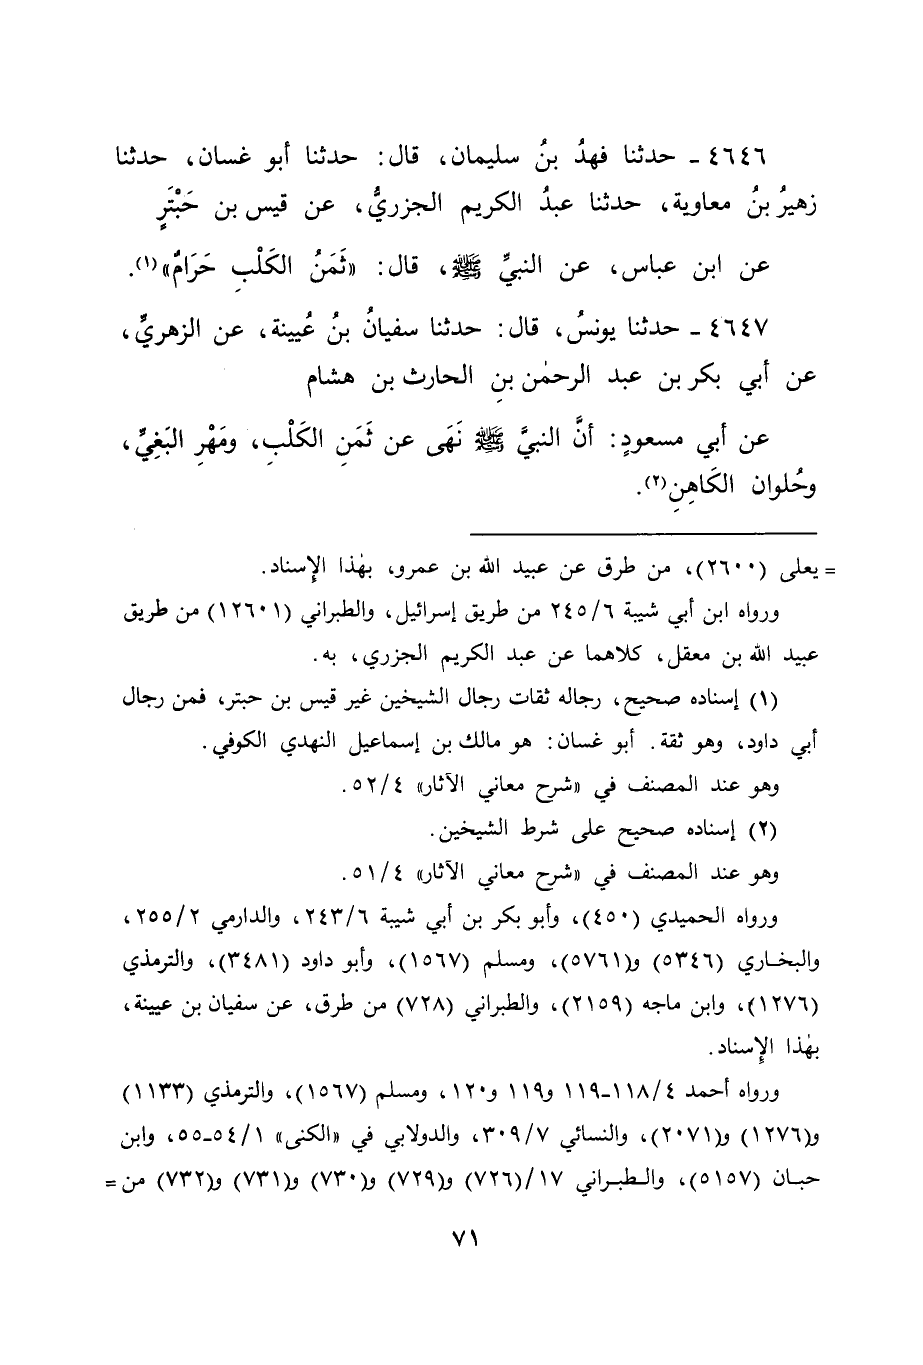 ٤٦٤٦ ـ حدثنا فهدُ بنُ سليمان، قال: حدثنا أبو غسان، حدثنا
زهيرُ بنُ معاوية، حدثنا عبدُ الكريم الجزريُّ، عن قيس بن حَبْتَرٍ
عن ابن عباس، عن النبيِّ ﷺ، قال: «ثَمَنُ الكَلْبِ حَرَامٌ»(١).
٤٦٤٧ ـ حدثنا يونسُ، قال: حدثنا سفيانُ بنُ عُيينة، عن الزهريِّ،
عن أبي بكر بن عبد الرحمٰن بنِ الحارث بن هشام
عن أبي مسعودٍ: أنَّ النبيَّ ﷺ نَهَى عن ثَمَنِ الكَلْبِ، ومَهْرِ البَغِيِّ،
وحُلوان الكَاهِنِ(٢).
= يعلى (٢٦٠٠)، من طرق عن عبيد الله بن عمرو، بهٰذا الإِسناد.
ورواه ابن أبي شيبة ٢٤٥/٦ من طريق إسرائيل، والطبراني (١٢٦٠١) من طريق
عبيد الله بن معقل، كلاهما عن عبد الكريم الجزري، به.
(١) إسناده صحيح، رجاله ثقات رجال الشيخين غير قيس بن حبتر، فمن رجال
أبي داود، وهو ثقة. أبو غسان: هو مالك بن إسماعيل النهدي الكوفي.
وهو عند المصنف في «شرح معاني الآثار» ٥٢/٤.
(٢) إسناده صحيح على شرط الشيخين.
وهو عند المصنف في «شرح معاني الآثار» ٥١/٤.
ورواه الحميدي (٤٥٠)، وأبو بكر بن أبي شيبة ٢٤٣/٦، والدارمي ٢٥٥/٢،
والبخاري (٥٣٤٦) و(٥٧٦١)، ومسلم (١٥٦٧)، وأبو داود (٣٤٨١)، والترمذي
(١٢٧٦)، وابن ماجه (٢١٥٩)، والطبراني (٧٢٨) من طرق، عن سفيان بن عيينة،
بهٰذا الإِسناد.
ورواه أحمد ١١٨/٤ـ١١٩ و١١٩ و١٢٠، ومسلم (١٥٦٧)، والترمذي (١١٣٣)
و(١٢٧٦) و(٢٠٧١)، والنسائي ٣٠٩/٧، والدولابي في «الكنى» ٥٤/١ـ٥٥، وابن
حبان (٥١٥٧)، والطبراني ١٧/(٧٢٦) و(٧٢٩) و(٧٣٠) و(٧٣١) و(٧٣٢) من =
٧١